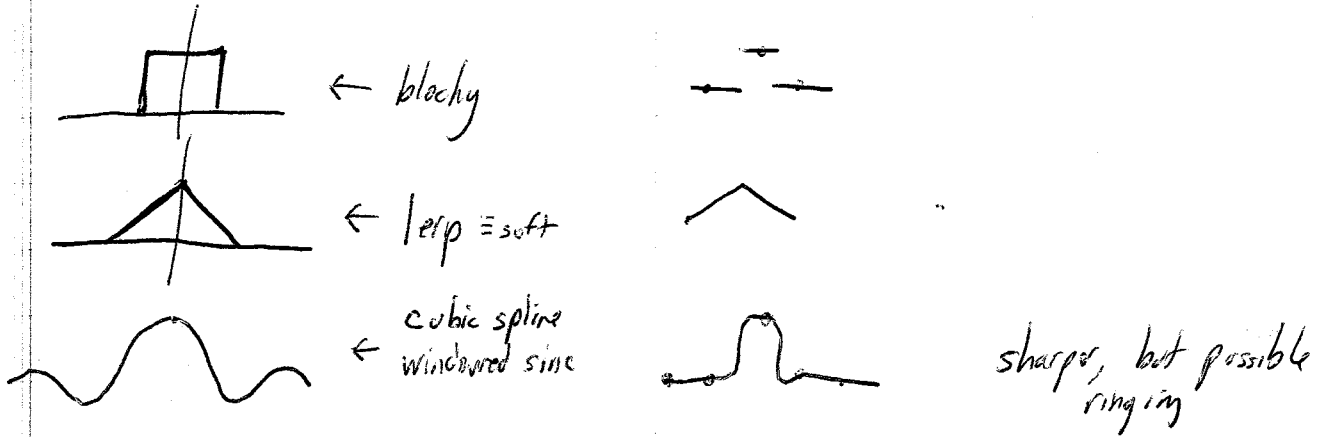 ← blochy
← lerp ≡ soft
← cubic spline
windowed sinc
sharper, but possible
ringing